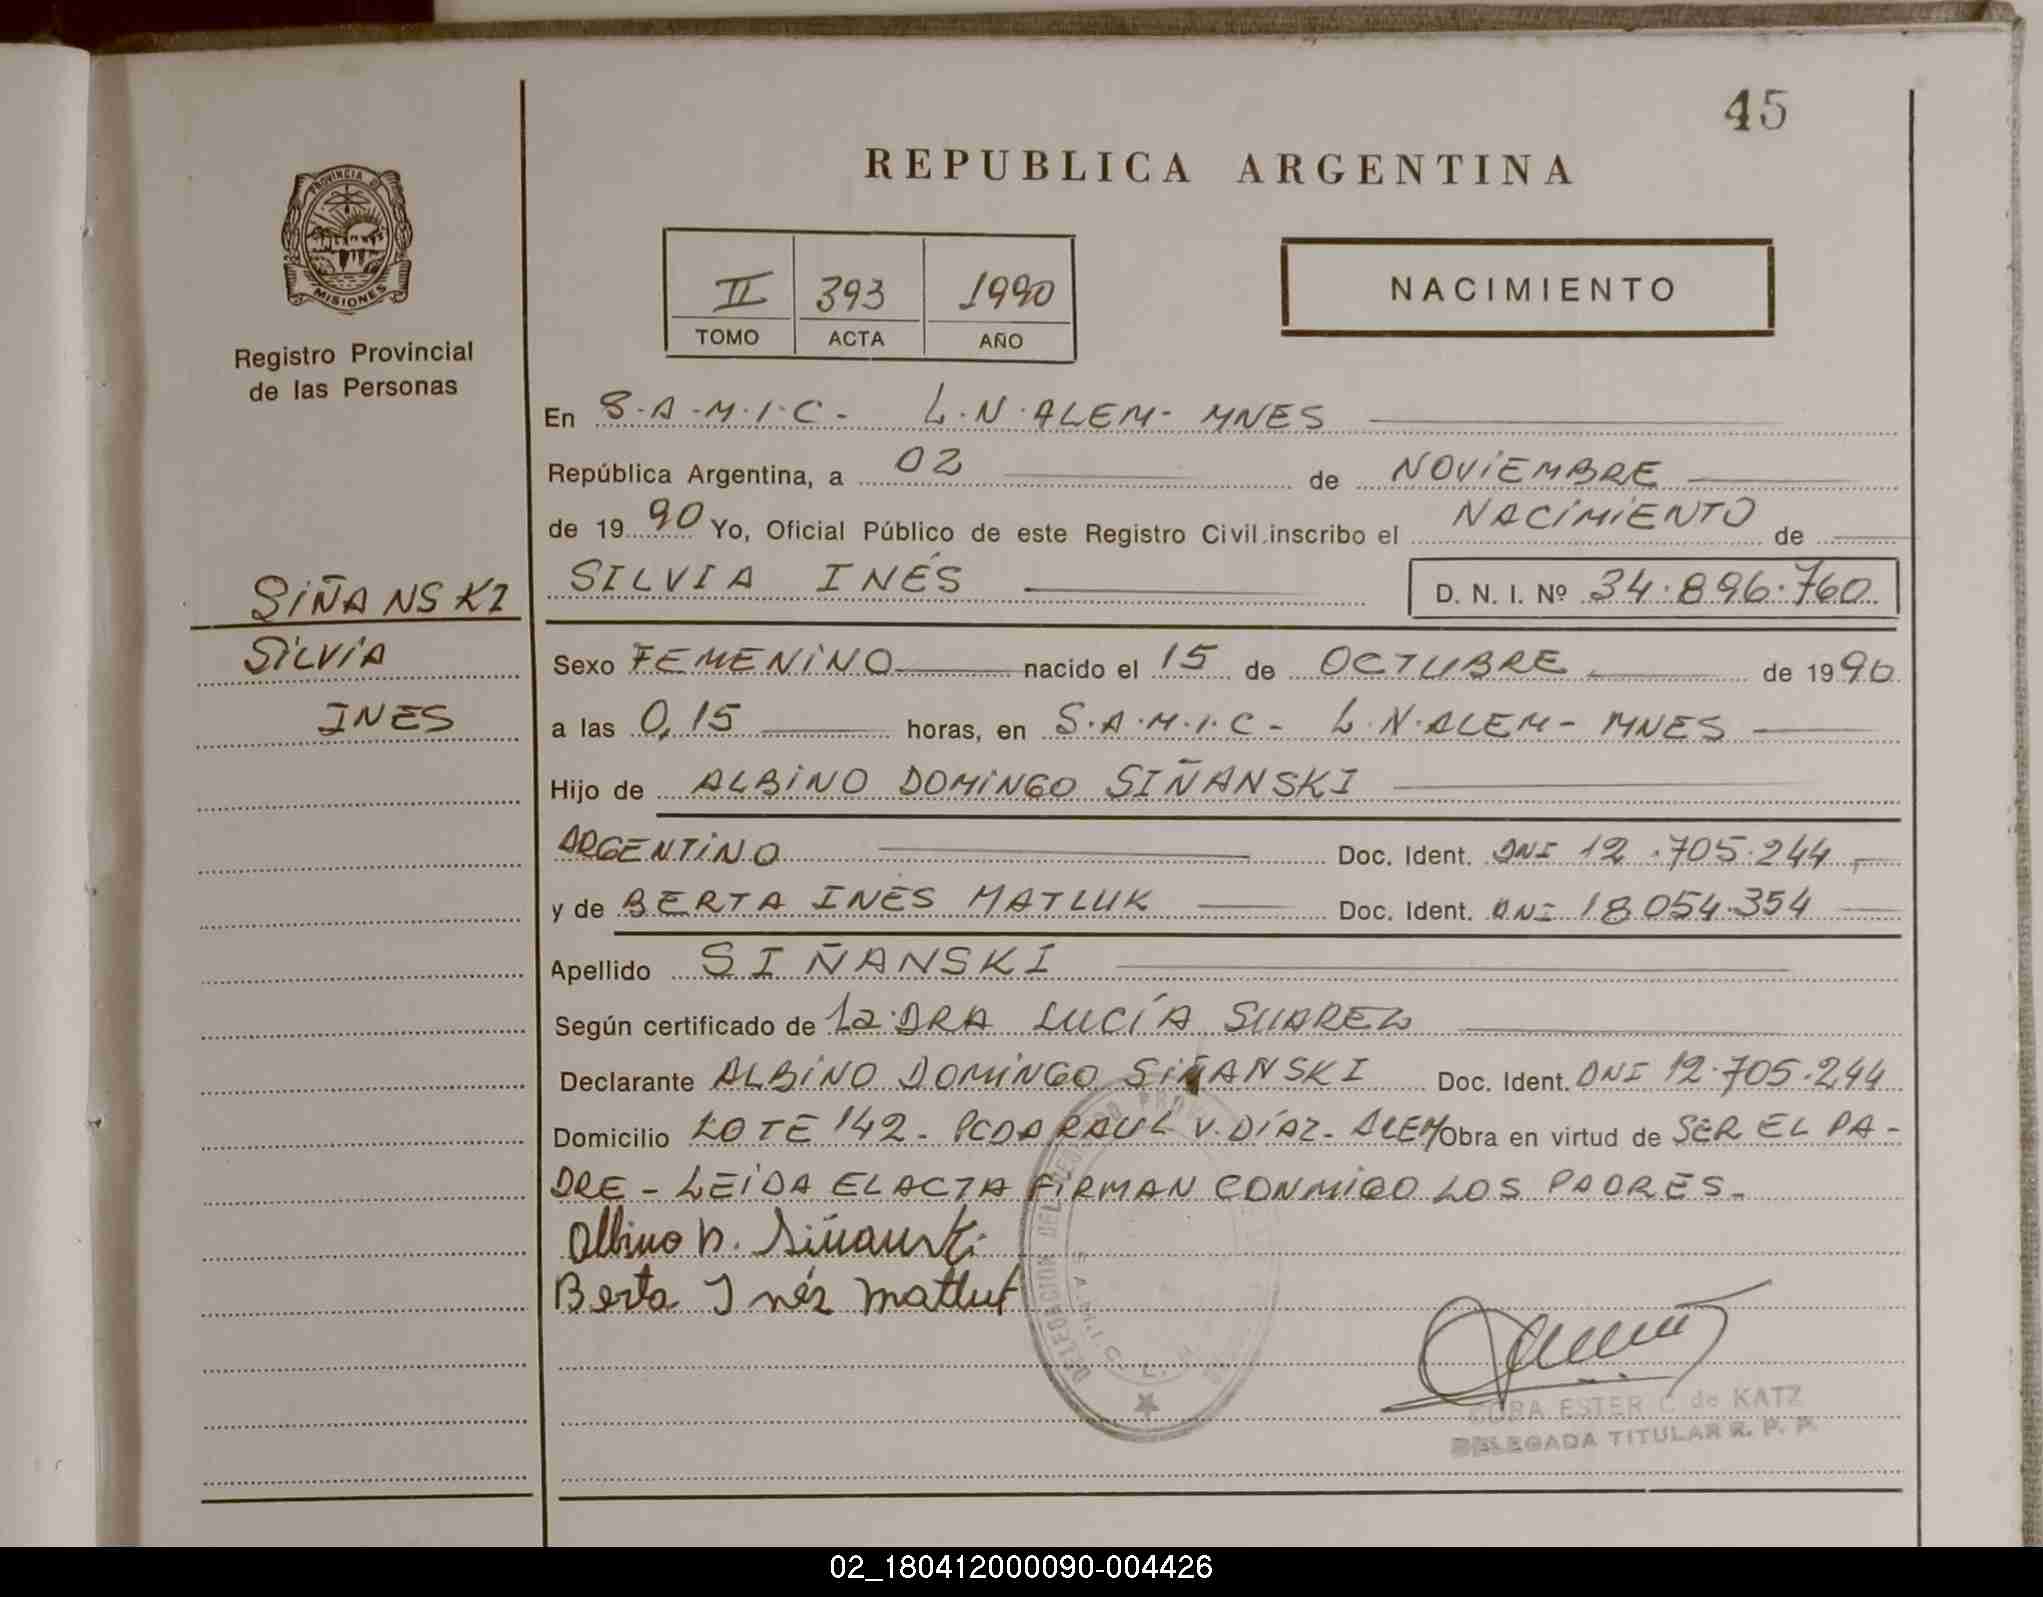 45
REPUBLICA ARGENTINA
PROVINCIA DE
MISIONES
Registro Provincial
de las Personas
II 393 1990
TOMO ACTA AÑO
NACIMIENTO
En S.A.M.I.C- L.N.ALEM- MNES
República Argentina, a 02 de NOViEMBRE
de 1990 Yo, Oficial Público de este Registro Civil inscribo el NACiMiENTO de
SILVIA INÉS D. N. I. Nº 34.896.760
SiÑANSKI
SiLViA
INES
Sexo FEMENiNO nacido el 15 de OCTUBRE de 1990
a las 0,15 horas, en S.A.M.I.C- L.N.ALEM- MNES
Hijo de ALBiNO DOMiNGO SIÑANSKI
ARGENTiNO Doc. Ident. DNI 12.705.244
y de BERTA INÉS MATLUK Doc. Ident. DNI 18.054.354
Apellido SIÑANSKI
Según certificado de La DRA LUCÍA SUAREZ
Declarante ALBiNO DOMiNGO SiÑANSKI Doc. Ident. DNI 12.705.244
Domicilio LOTE 142- PCDA RAUL V. DÍAZ- ALEM Obra en virtud de SER EL PA-
DRE - LEiDA EL ACTA FiRMAN CONMIGO LOS PADRES-
Albino D. Siñanski
Berta Inés Matluk
DELEGACION DEL REGISTRO PROV
S.A.M.I.C. L.
ESTER C. de KATZ
DELEGADA TITULAR R. P. P.
02_180412000090-004426